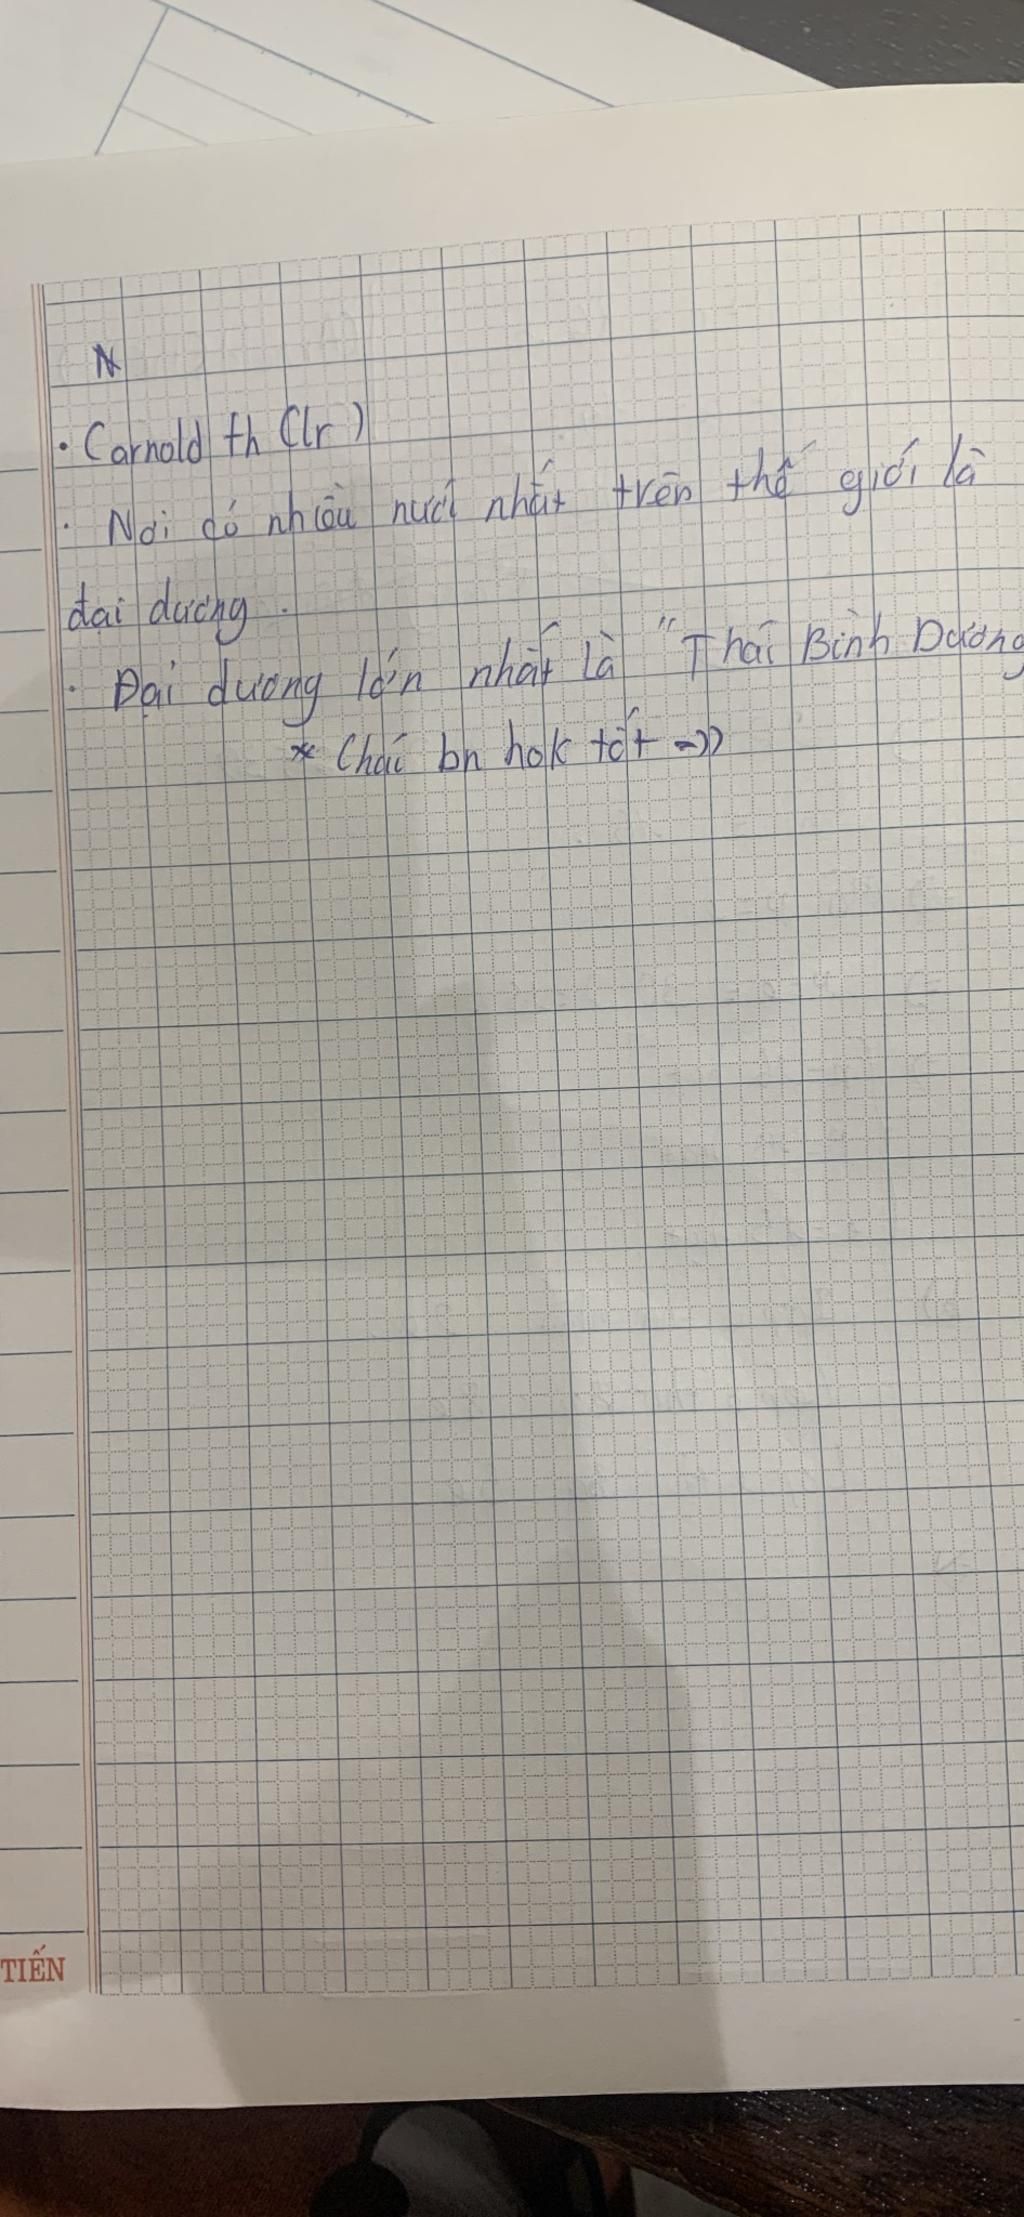 · Carnold th (lr)
· Nơi có nhiều nước nhất trên thế giới là
đại dương.
· Đại dương lớn nhất là "Thái Bình Dương
* Chúc bn hok tốt =))
TIẾN